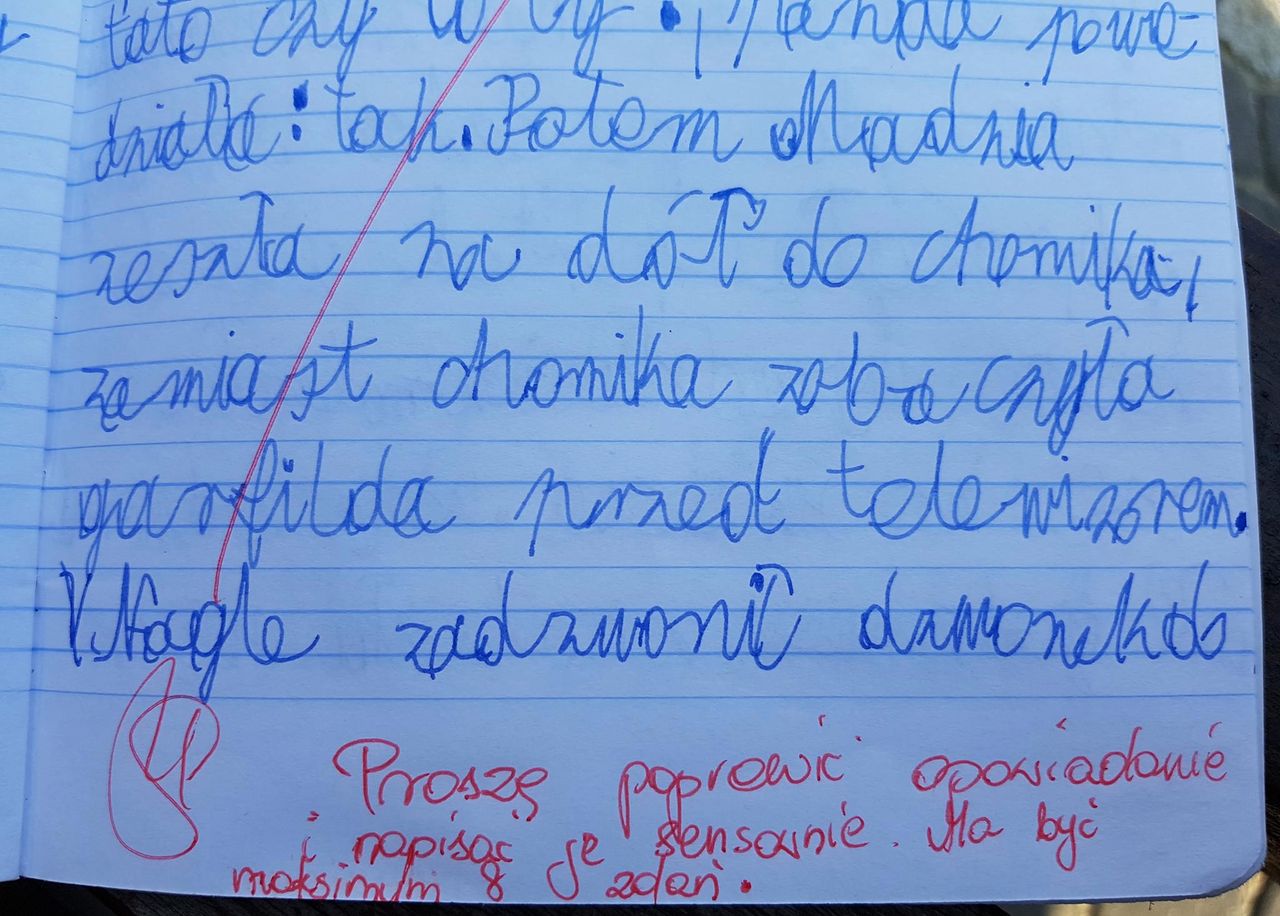 tato czy
powie-
działa: tak. Potem Madzia
zeszła na dół do chomika,
zamiast chomika zobaczyła
garfilda przed telewizorem.
V. Nagle zadzwonił dzwonek do
Proszę poprawić opowiadanie
i napisać je sensownie. Ma być
maksimum 8 zdań.